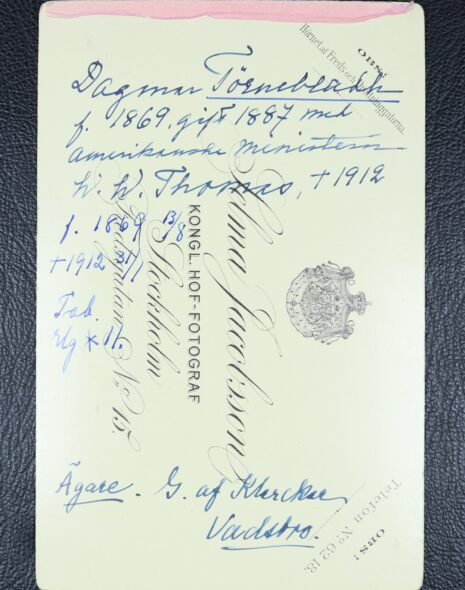 Dagmar Törnebladh
f. 1869, gift 1887 med
amerikanske ministern
W. W. Thomas, +1912
f. 1869 13/8
+1912 31/1
Tab.
11.
Ägare. G. af Klercker
Vadsbro.
Selma Jacobsson
KONGL. HOF-FOTOGRAF
Stockholm
Fredsgatan No 15.
OBS!
Hörnet af Freds och Drottninggatorna.
Telefon No 6218.
OBS!